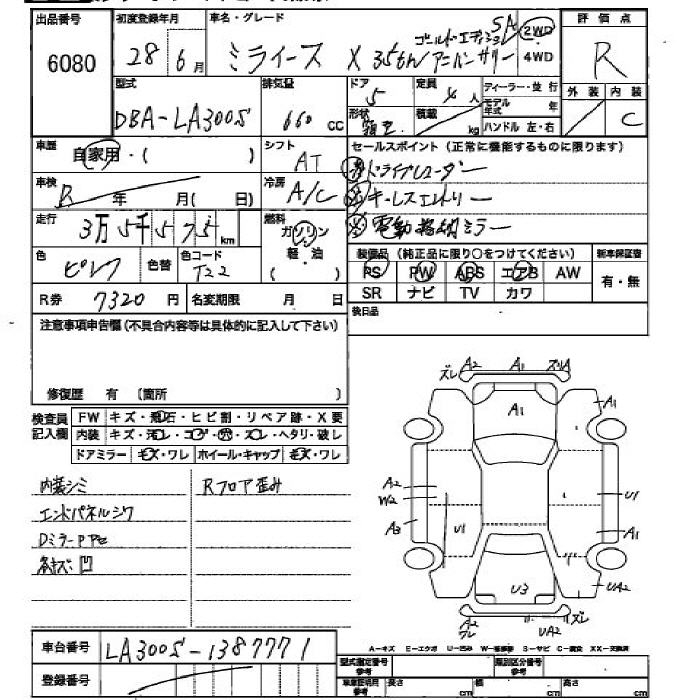 出品番号 初度登録年月 車名・グレード 評価点
6080 28年6月 ミライース X 35th ゴールドエディションSA アニバーサリー 2WD 4WD R
型式 排気量 ドア 定員 ディーラー・並行 外装 内装
DBA-LA300S 660 CC 5 4人 モデル年式 年 C
形状 箱型 積載 kg ハンドル 左・右
車歴 自家用・( ) シフト AT セールスポイント(正常に機能するものに限ります)
ドライブレコーダー
車検 年 月( 日) 冷房 A/C キーレスエントリー
走行 3万5千575km 燃料 ガソリン 軽・油 電動格納ミラー
色 ピンク 色替 色コード T22 装備品(純正品に限り○をつけてください) 新車保証書
PS PW ABS エアB AW 有・無
R券 7320円 名変期限 月 日 SR ナビ TV カワ
注意事項申告欄(不具合内容等は具体的に記入して下さい) 後日品
修復歴 有 (箇所 )
検査員記入欄 FW キズ・飛石・ヒビ割・リペア跡・X要
内装 キズ・汚レ・コゲ・穴・スレ・ヘタリ・破レ
ドアミラー キズ・ワレ ホイール・キャップ キズ・ワレ
内装シミ Rフロア歪み
エンドパネルシワ
DミラーP
キズ・凹
ズレ A2 A1 ズレA
A1 A1
A2
W2 U1
A3 U1 A1
U3 UA2
A2 ワレ UA2 ズレ
車台番号 LA300S-1387771
A-キズ E-エクボ U-凹ミ S-サビ C-腐食 XX-交換済
登録番号 型式指定番号参考 類別区分番号参考
車庫証明用参考 長さ cm 幅 cm 高さ cm